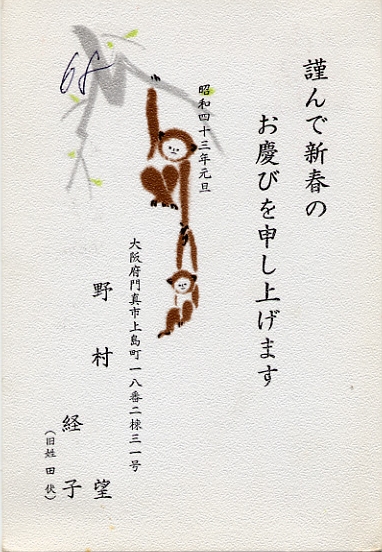 謹んで新春の
お慶びを申し上げます
昭和四十三年元旦
大阪府門真市上島町一八番二棟三一号
野村 望
経子
(旧姓 田伏)
68